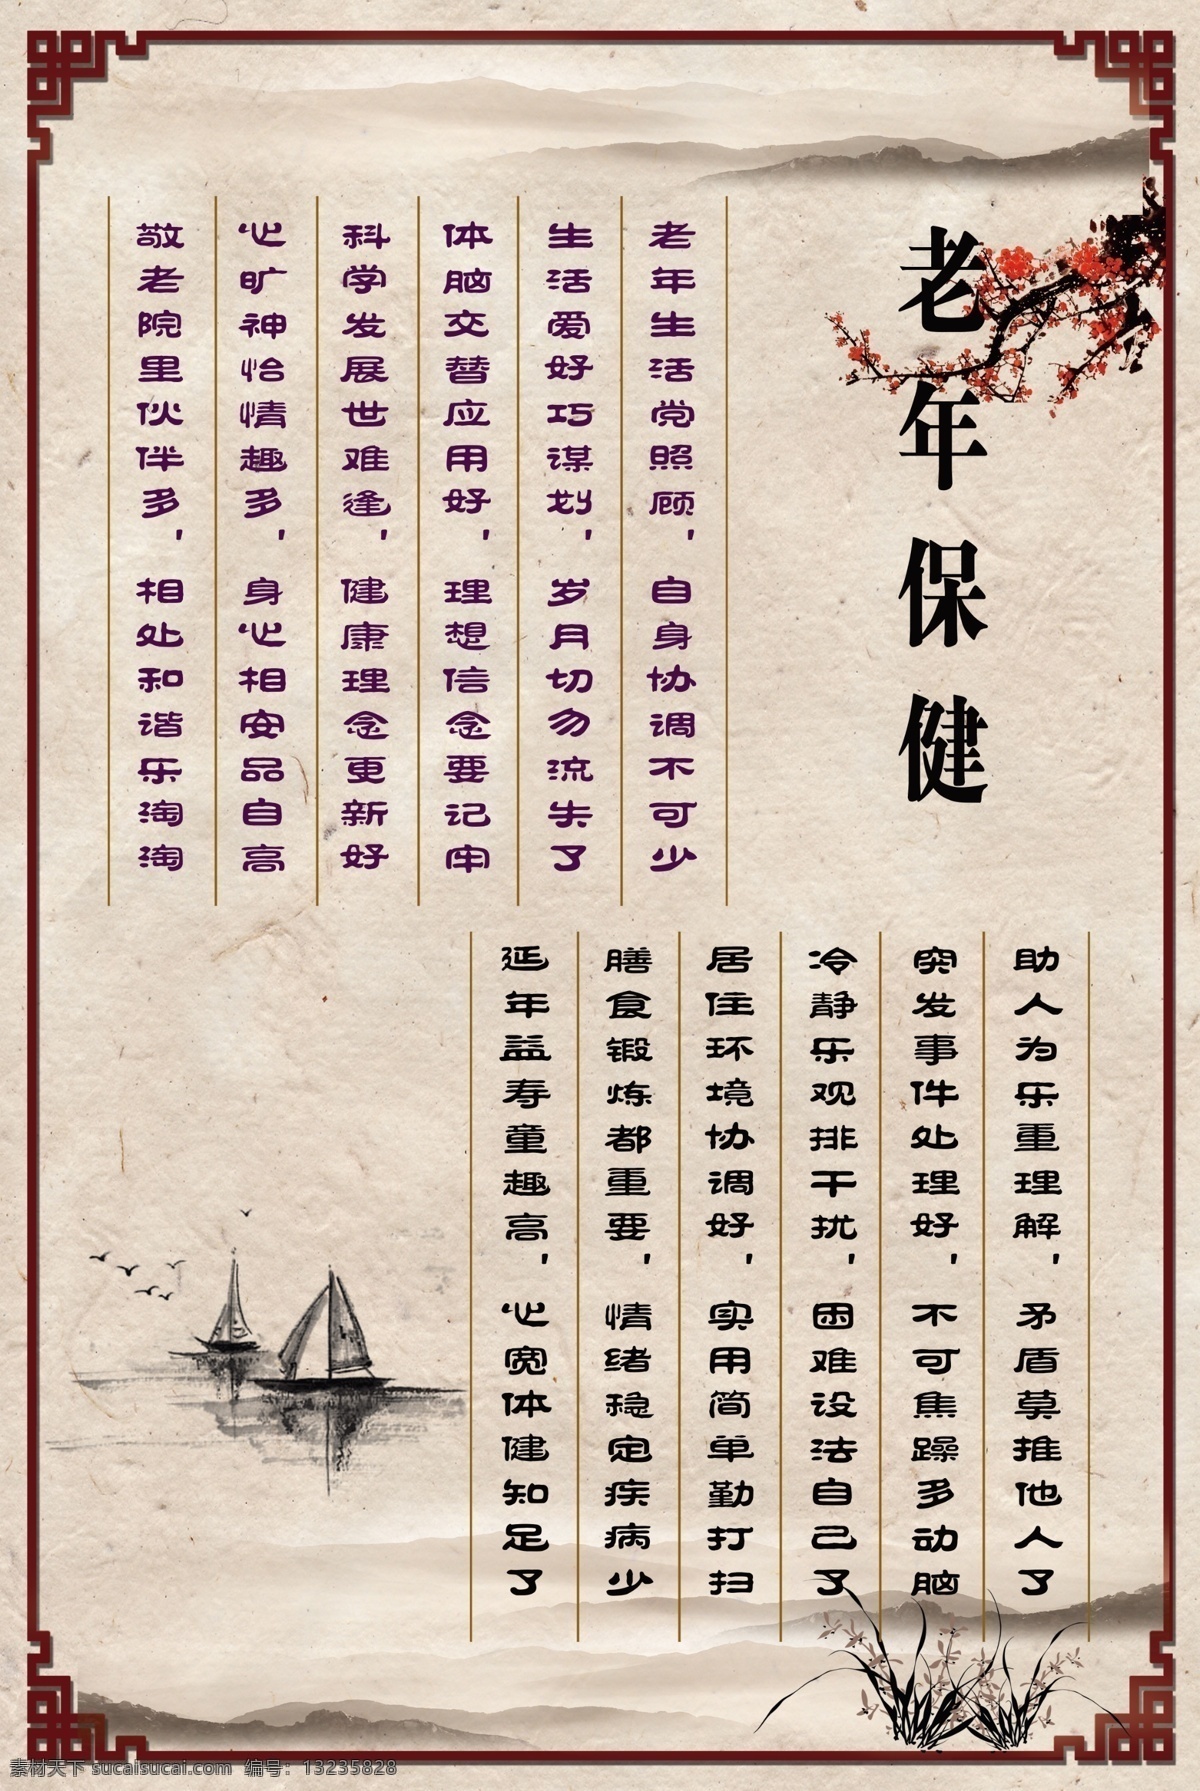 老年保健
老年生活党照顾，自身协调不可少
生活爱好巧谋划，岁月切勿流失了
体脑交替应用好，理想信念要记牢
科学发展世难逢，健康理念更新好
心旷神怡情趣多，身心相安品自高
敬老院里伙伴多，相处和谐乐淘淘
助人为乐重理解，矛盾莫推他人了
突发事件处理好，不可焦躁多动脑
冷静乐观排干扰，困难设法自己了
居住环境协调好，实用简单勤打扫
膳食锻炼都重要，情绪稳定疾病少
延年益寿童趣高，心宽体健知足了
素材天下 sucaisucai.com 编号：13235828